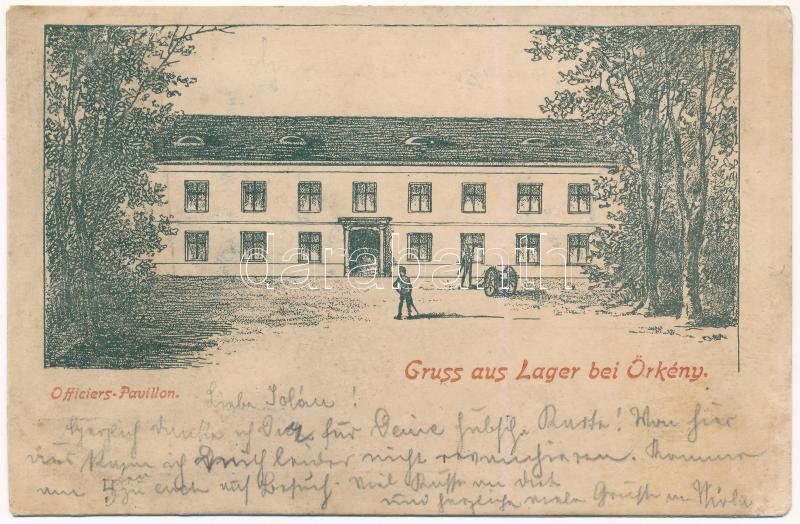 darabanth
Gruss aus Lager bei Örkény.
Officiers-Pavillon.
Liebe !
Herzlich danke ich Dir für Deine hübsche Karte! Von hier
aus kann ich Dich leider nicht revanchieren. Komme
am 5 zu euch auf Besuch. Viel Küsse an dich
und herzliche viele Grüsse an